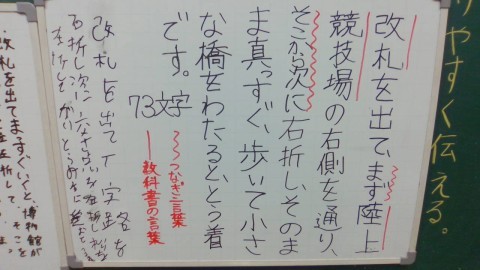 りやすく伝える。
改札を出て、まず陸上
競技場の右側を通り、
そこから次に右折し、そのま
ま真っすぐ、歩いて小さ
な橋をわたると、とう着
です。
73文字
つなぎ言葉
教科書の言葉
改札を出てT字路を
右折し次に
改札を出てまっすぐいくと、博物館が